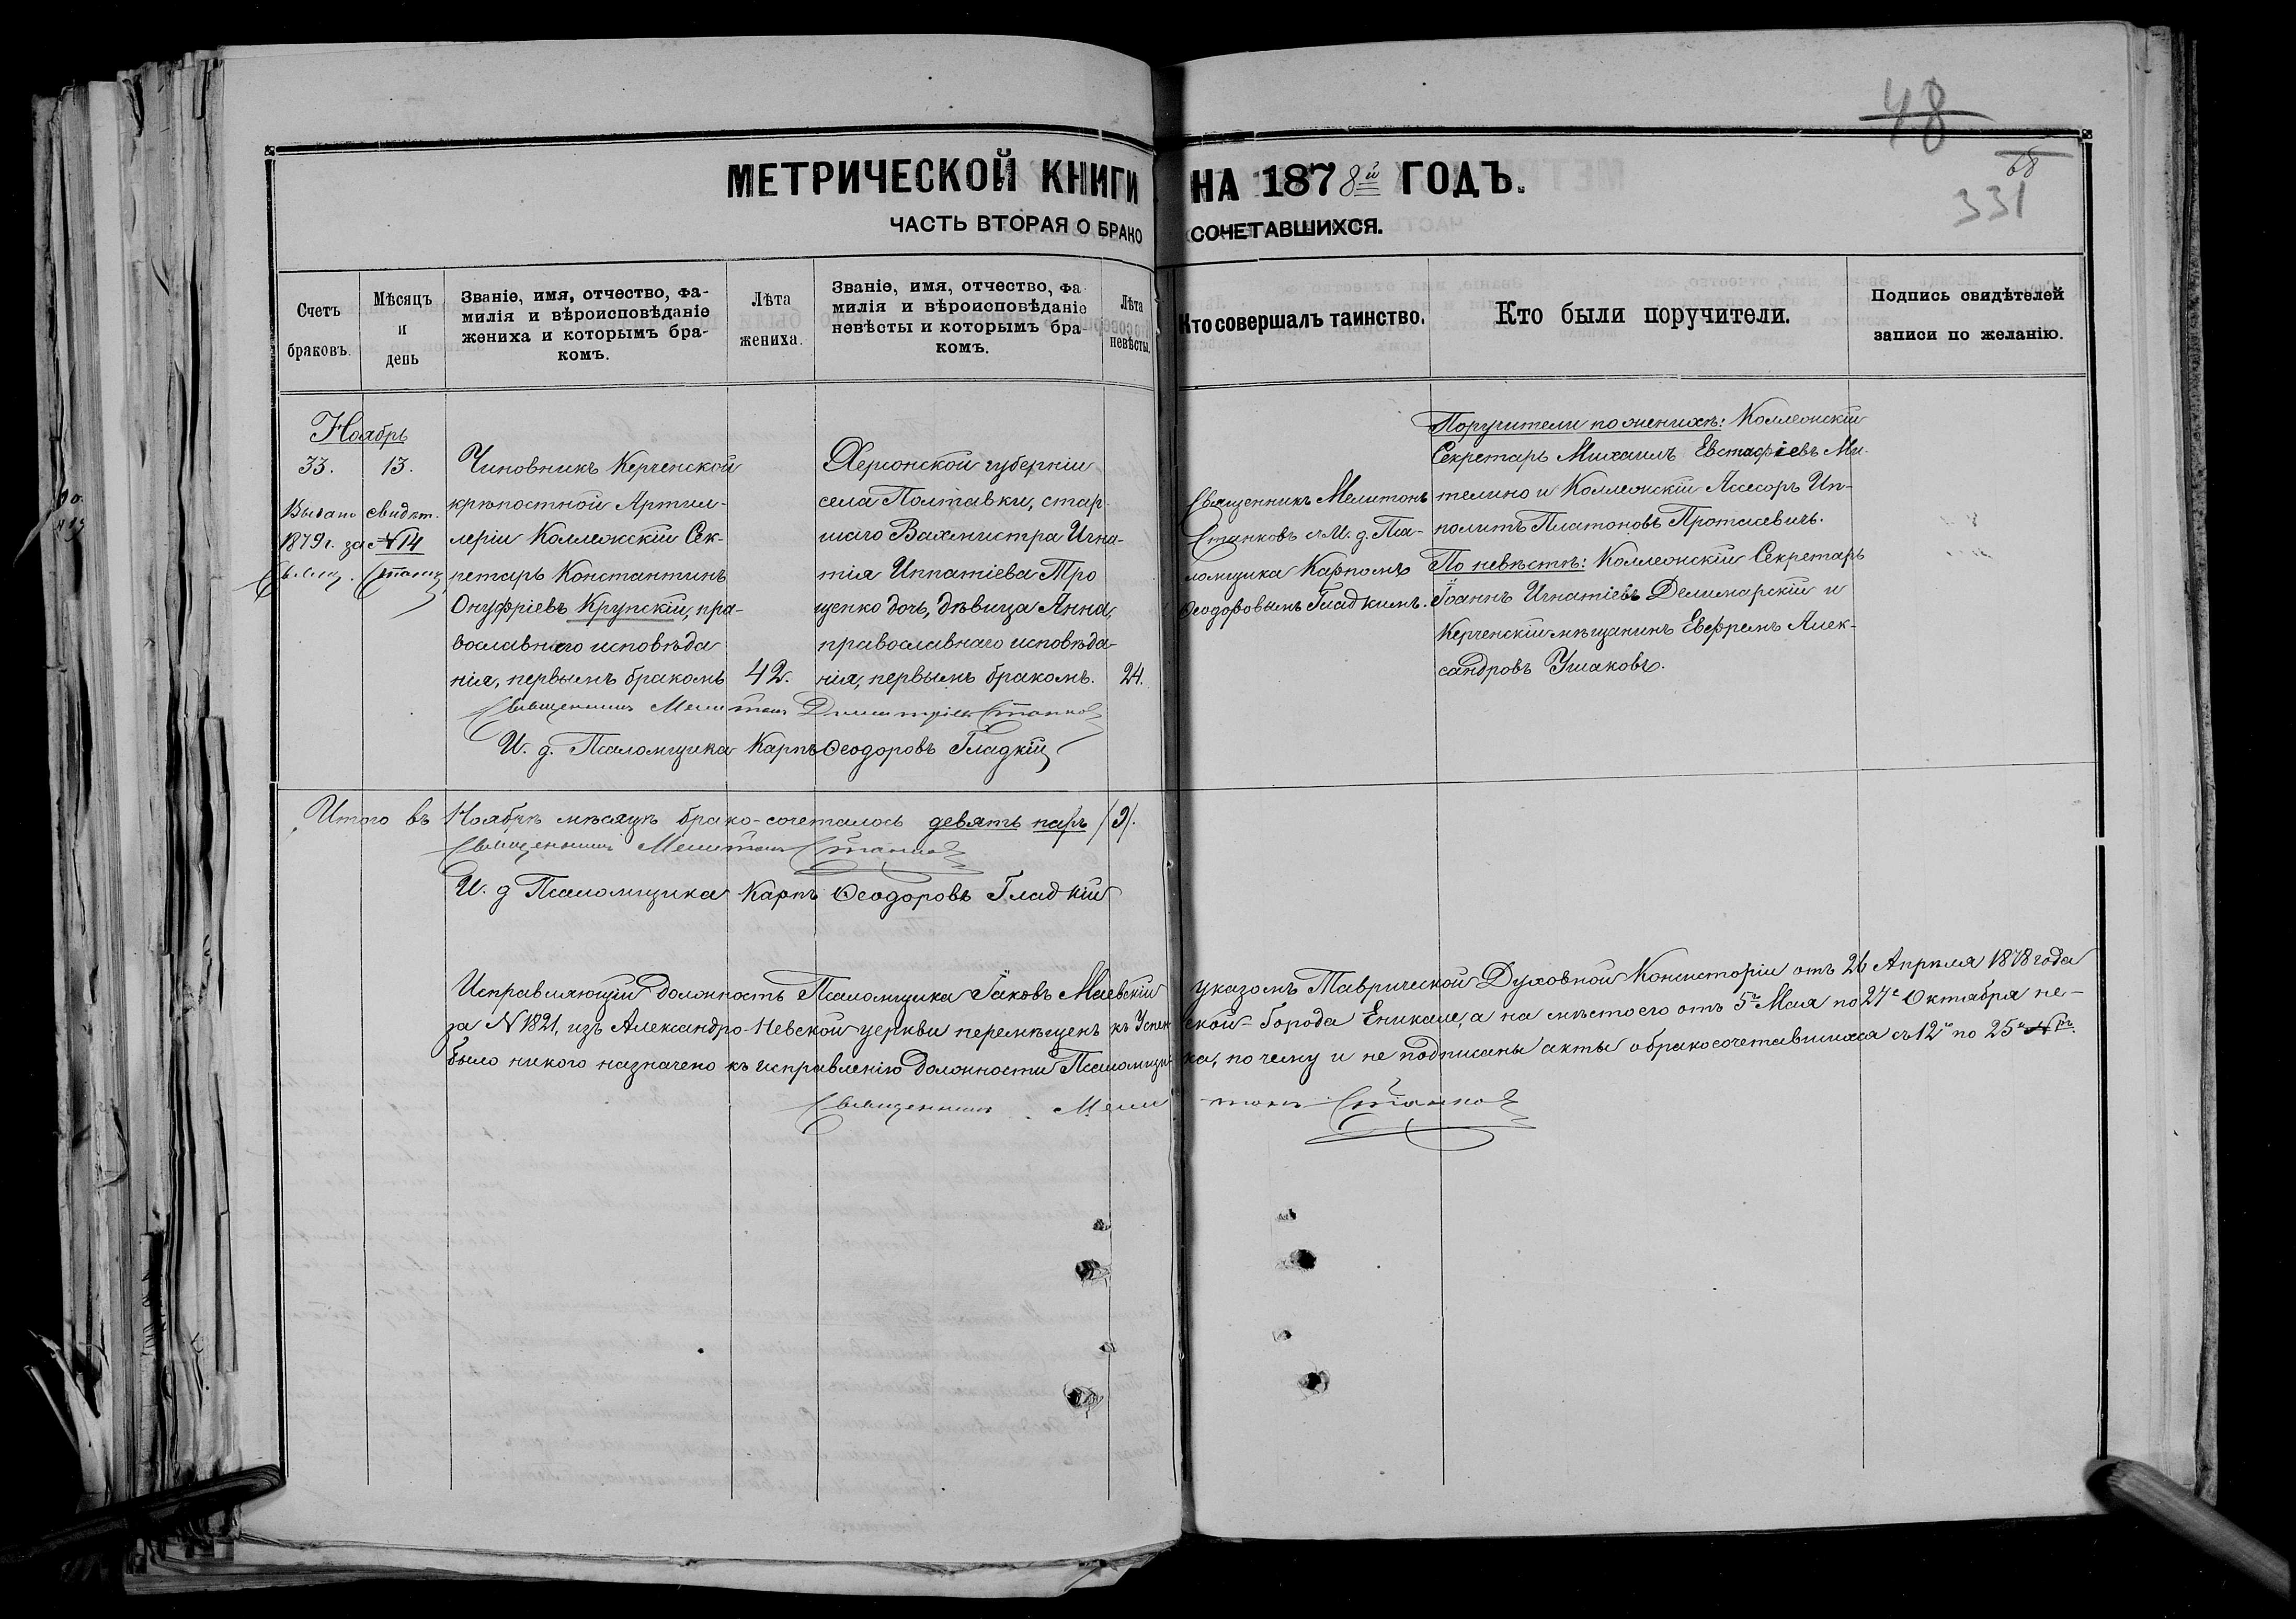 48
68
331
МЕТРИЧЕСКОЙ КНИГИ НА 1878й ГОДЪ.
ЧАСТЬ ВТОРАЯ О БРАКОСОЧЕТАВШИХСЯ.
Счетъ
браковъ.
Мѣсяцъ
и
день
Званіе, имя, отчество, фа-
милія и вѣроисповѣданіе
жениха и которымъ бра-
комъ.
Лѣта
жениха.
Званіе, имя, отчество, фа
милія и вѣроисповѣданіе
невѣсты и которымъ бра-
комъ.
Лѣта
невѣсты.
Кто совершалъ таинство.
Кто были поручители.
Подпись свидѣтелей
записи по желанію.
Ноябрь
33. 13.
Выдано свидѣт.
1879 г. за №14
Свящ. Станк
Чиновникъ Керченской
крѣпостной Артил-
леріи Коллежскій Сек-
ретарь Константинъ
Онуфріевъ Крупскій, пра-
вославнаго исповѣда
нія, первымъ бракомъ
42.
Херсонской губерніи
села Полтавки, стар-
шаго Вахмистра Игна-
тія Ипатіева Тро
щенко дочь, дѣвица Анна,
православнаго исповѣда-
нія, первымъ бракомъ.
24.
Священникъ Мелитонъ
Станковъ съ И. д. Пса-
ломщика Карпомъ
Ѳеодоровымъ Гладкимъ.
Поручители по женихѣ: Коллежскій
Секретарь Михаилъ Евстафіевъ Ми-
телино и Коллежскій Ассесоръ Ип-
политъ Платоновъ Протасевичъ.
По невѣстѣ: Коллежскій Секретарь
Іоаннъ Игнатіевъ Делинарскій и
Керченскій мѣщанинъ Евфремъ Алек-
сандровъ Ушаковъ.
Священникъ Мелитонъ Димитріевъ Станковъ
И. д. Псаломщика Карпъ Ѳеодоровъ Гладкій
Итого въ Ноябрѣ мѣсяцѣ брако-сочеталось девять паръ (9).
Священникъ Мелитонъ Станковъ
И. д Псаломщика Карпъ Ѳеодоровъ Гладкій
Исправляющій должность Псаломщика Іаковъ Маевскій указомъ Таврической Духовной Консисторіи отъ 26 Апрѣля 1878 года
за №1821, изъ Александро-Невской церкви перемѣщенъ къ Успенской города Еникале, а на мѣсто его отъ 5го Мая по 27е Октября не-
было никого назначено къ исправленію должности Псаломщика, почему и не подписаны акты о бракосочетавшихся съ 12го по 25й №ръ.
Священникъ Мелитонъ Станковъ